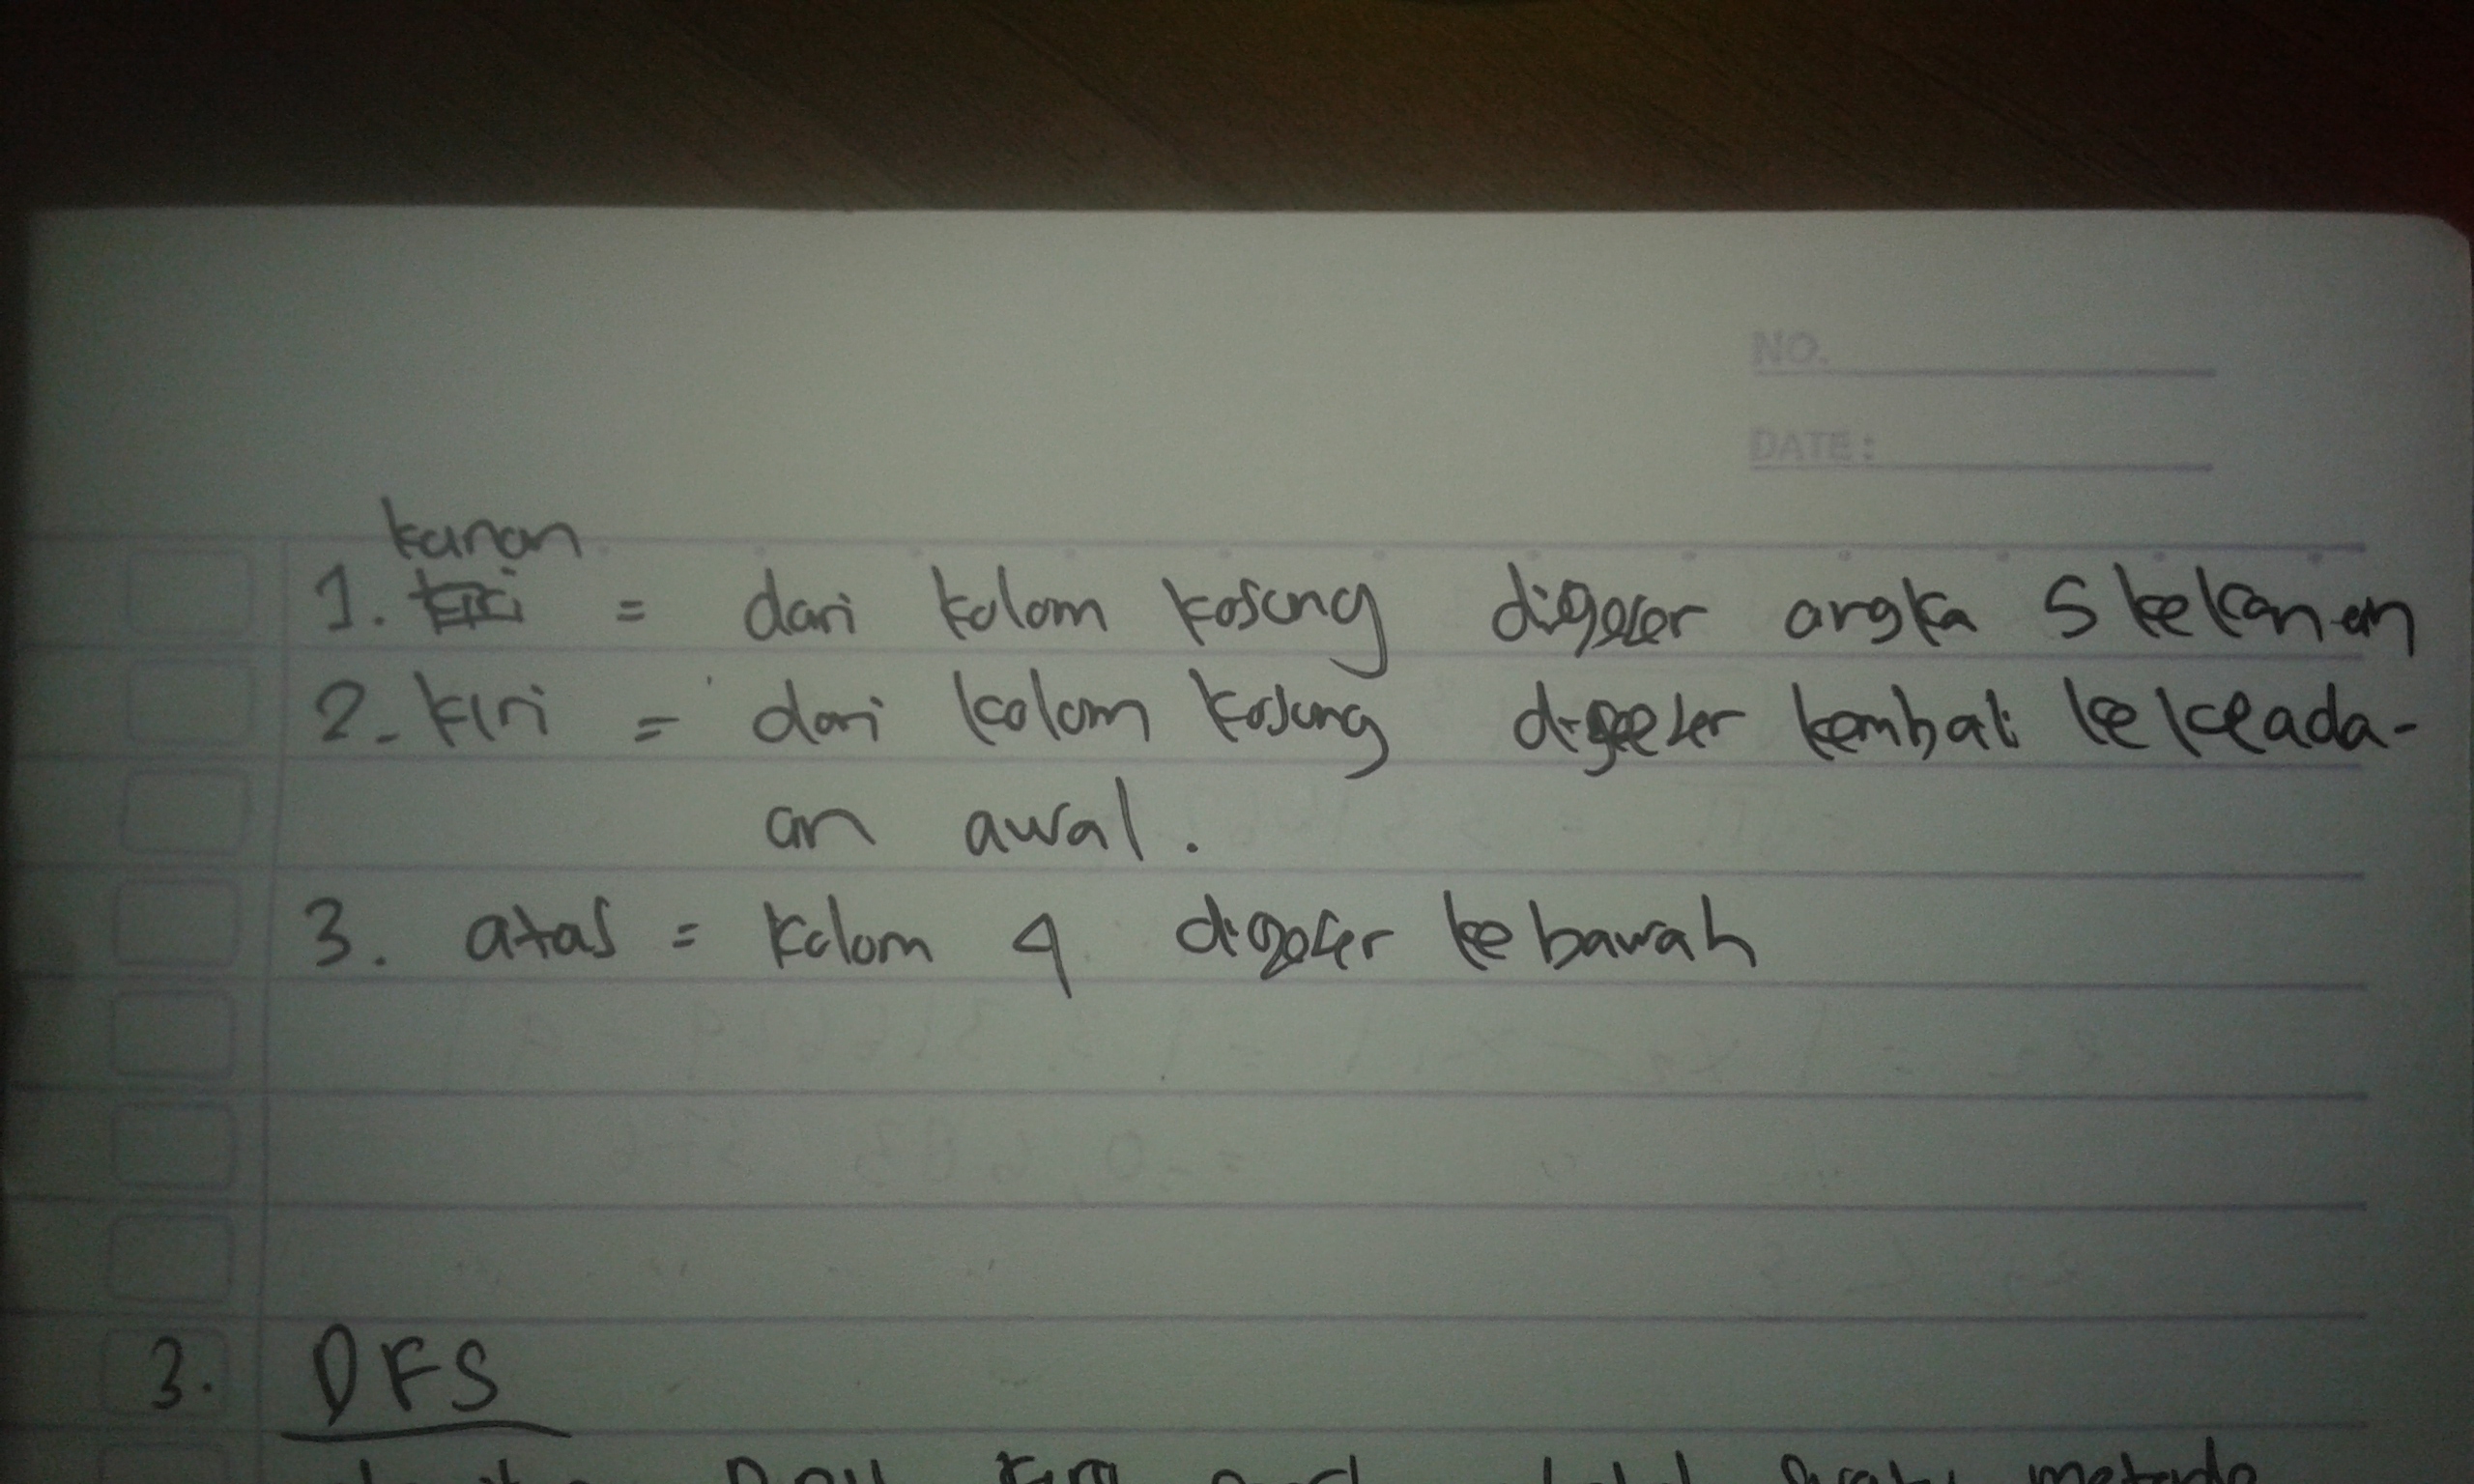 NO.
DATE:
kanan
1. = dari kolom kosong digeser angka 5 kekanan
2. kiri = dari kolom kosong digeser kembali kekeada-
an awal.
3. atas = kolom 4 digeser kebawah
3. DFS
metode